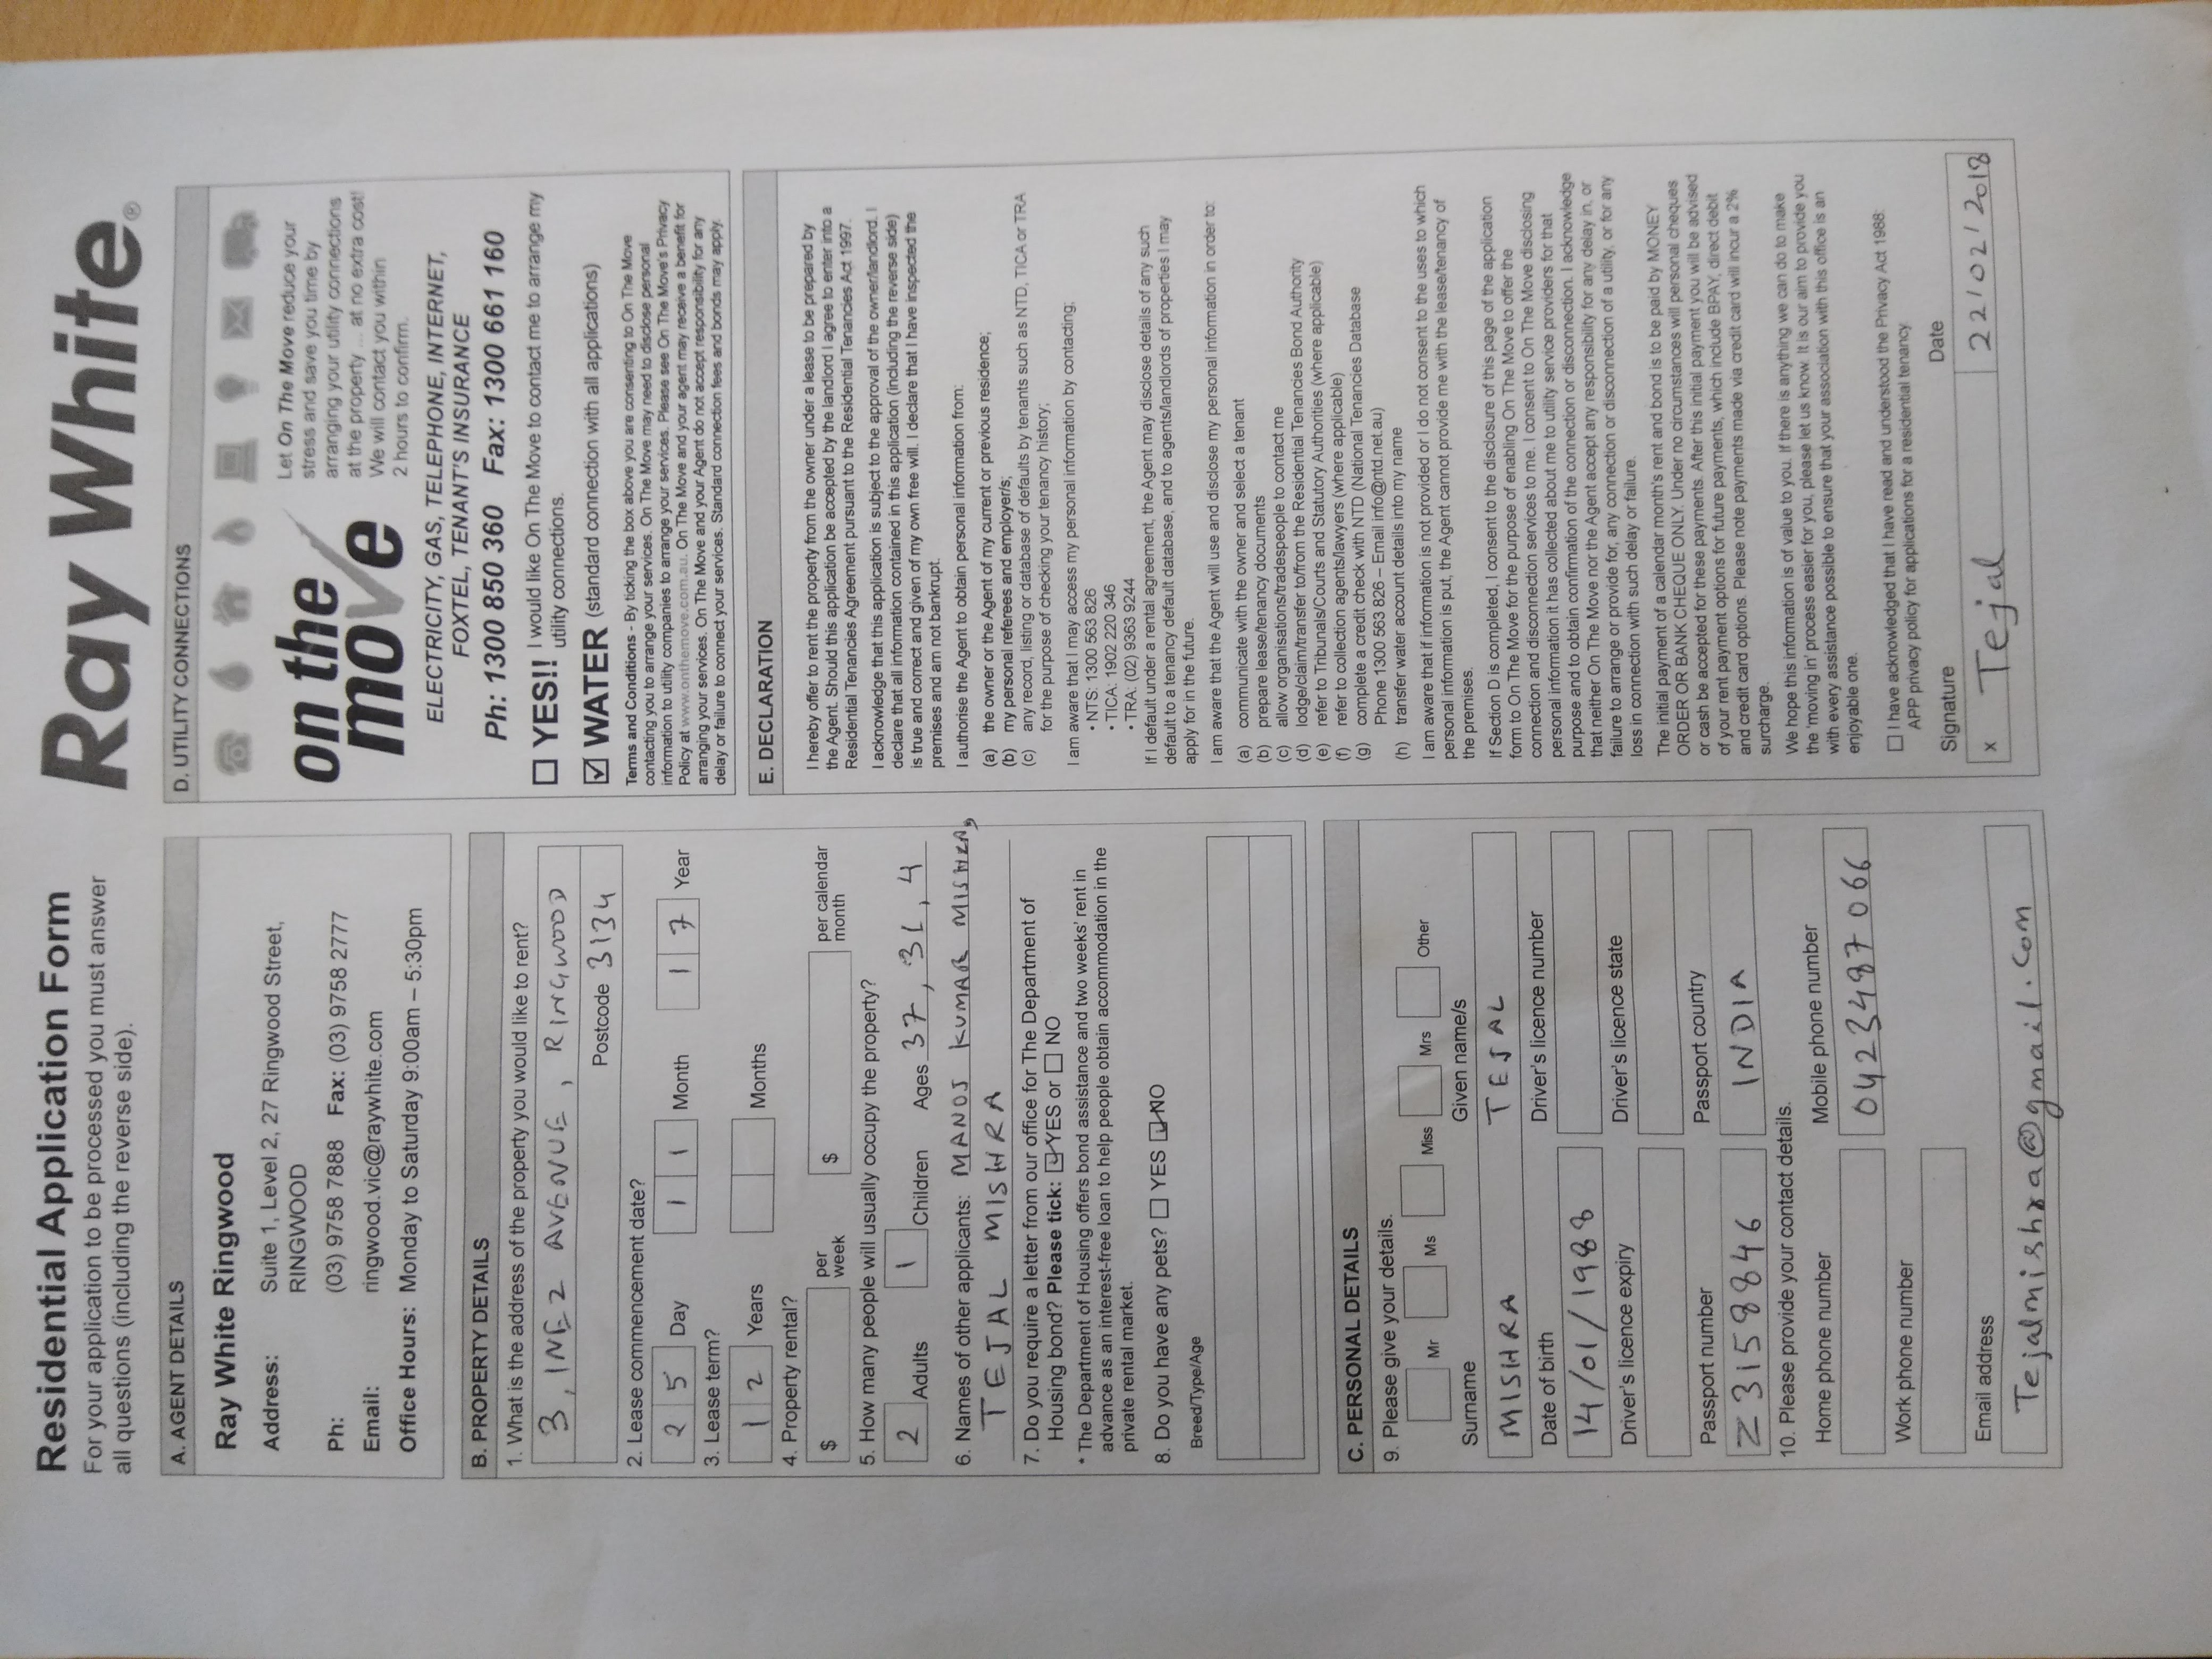 Residential Application Form
For your application to be processed you must answer
all questions (including the reverse side).
Ray White®
A. AGENT DETAILS
Ray White Ringwood
Address: Suite 1, Level 2, 27 Ringwood Street,
RINGWOOD
Ph: (03) 9758 7888 Fax: (03) 9758 2777
Email: ringwood.vic@raywhite.com
Office Hours: Monday to Saturday 9:00am – 5:30pm
B. PROPERTY DETAILS
1. What is the address of the property you would like to rent?
3, INEZ AVENUE, RINGWOOD
Postcode 3134
2. Lease commencement date?
2 5 Day 1 1 Month 1 7 Year
3. Lease term?
1 2 Years Months
4. Property rental?
$ per week $ per calendar month
5. How many people will usually occupy the property?
2 Adults 1 Children Ages 37, 31, 4
6. Names of other applicants: MANOJ KUMAR MISHRA,
TEJAL MISHRA
7. Do you require a letter from our office for The Department of
Housing bond? Please tick: ☑ YES or ☐ NO
* The Department of Housing offers bond assistance and two weeks' rent in
advance as an interest-free loan to help people obtain accommodation in the
private rental market.
8. Do you have any pets? ☐ YES ☑ NO
Breed/Type/Age
C. PERSONAL DETAILS
9. Please give your details.
Mr Ms Miss Mrs Other
Surname Given name/s
MISHRA TEJAL
Date of birth Driver's licence number
14/01/1988
Driver's licence expiry Driver's licence state
Passport number Passport country
Z3158846 INDIA
10. Please provide your contact details.
Home phone number Mobile phone number
0423487066
Work phone number
Email address
Tejalmishra@gmail.com
D. UTILITY CONNECTIONS
on the
move
Let On The Move reduce your
stress and save you time by
arranging your utility connections
at the property ... at no extra cost!
We will contact you within
2 hours to confirm.
ELECTRICITY, GAS, TELEPHONE, INTERNET,
FOXTEL, TENANT'S INSURANCE
Ph: 1300 850 360 Fax: 1300 661 160
☐ YES!! I would like On The Move to contact me to arrange my
utility connections.
☑ WATER (standard connection with all applications)
Terms and Conditions - By ticking the box above you are consenting to On The Move
contacting you to arrange your services. On The Move may need to disclose personal
information to utility companies to arrange your services. Please see On The Move's Privacy
Policy at www.onthemove.com.au. On The Move and your agent may receive a benefit for
arranging your services. On The Move and your Agent do not accept responsibility for any
delay or failure to connect your services. Standard connection fees and bonds may apply.
E. DECLARATION
I hereby offer to rent the property from the owner under a lease to be prepared by
the Agent. Should this application be accepted by the landlord I agree to enter into a
Residential Tenancies Agreement pursuant to the Residential Tenancies Act 1997.
I acknowledge that this application is subject to the approval of the owner/landlord. I
declare that all information contained in this application (including the reverse side)
is true and correct and given of my own free will. I declare that I have inspected the
premises and am not bankrupt.
I authorise the Agent to obtain personal information from:
(a) the owner or the Agent of my current or previous residence;
(b) my personal referees and employer/s;
(c) any record, listing or database of defaults by tenants such as NTD, TICA or TRA
for the purpose of checking your tenancy history;
I am aware that I may access my personal information by contacting;
• NTS: 1300 563 826
• TICA: 1902 220 346
• TRA: (02) 9363 9244
If I default under a rental agreement, the Agent may disclose details of any such
default to a tenancy default database, and to agents/landlords of properties I may
apply for in the future.
I am aware that the Agent will use and disclose my personal information in order to:
(a) communicate with the owner and select a tenant
(b) prepare lease/tenancy documents
(c) allow organisations/tradespeople to contact me
(d) lodge/claim/transfer to/from the Residential Tenancies Bond Authority
(e) refer to Tribunals/Courts and Statutory Authorities (where applicable)
(f) refer to collection agents/lawyers (where applicable)
(g) complete a credit check with NTD (National Tenancies Database
Phone 1300 563 826 – Email info@ntd.net.au)
(h) transfer water account details into my name
I am aware that if information is not provided or I do not consent to the uses to which
personal information is put, the Agent cannot provide me with the lease/tenancy of
the premises.
If Section D is completed, I consent to the disclosure of this page of the application
form to On The Move for the purpose of enabling On The Move to offer the
connection and disconnection services to me. I consent to On The Move disclosing
personal information it has collected about me to utility service providers for that
purpose and to obtain confirmation of the connection or disconnection. I acknowledge
that neither On The Move nor the Agent accept any responsibility for any delay in, or
failure to arrange or provide for, any connection or disconnection of a utility, or for any
loss in connection with such delay or failure.
The initial payment of a calendar month's rent and bond is to be paid by MONEY
ORDER OR BANK CHEQUE ONLY. Under no circumstances will personal cheques
or cash be accepted for these payments. After this initial payment you will be advised
of your rent payment options for future payments, which include BPAY, direct debit
and credit card options. Please note payments made via credit card will incur a 2%
surcharge.
We hope this information is of value to you. If there is anything we can do to make
the 'moving in' process easier for you, please let us know. It is our aim to provide you
with every assistance possible to ensure that your association with this office is an
enjoyable one.
☐ I have acknowledged that I have read and understood the Privacy Act 1988:
APP privacy policy for applications for a residential tenancy.
Signature Date
x Tejal 22/02/2018